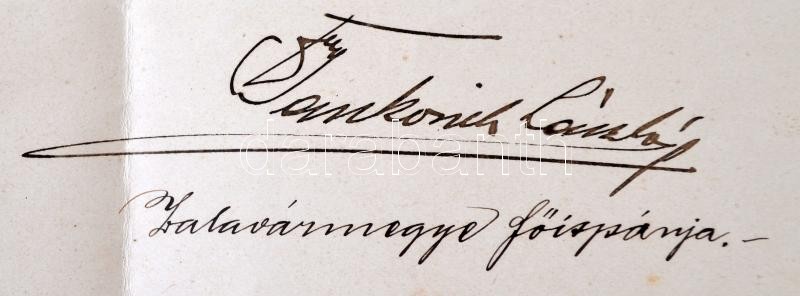 Jankovich László
Zalavármegye főispánja.—
darabanth